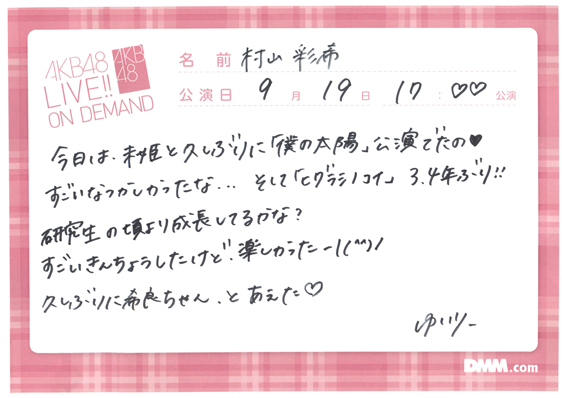 AKB48
LIVE!!
ON DEMAND
AKB
48
名前 村山 彩希
公演日 9月 19日 17:♡♡公演
今日は、 と久しぶりに「僕の太陽」公演でたの♥
すごいなつかしかったな... そして「ヒグラシノコイ」 3.4年ぶり!!
研究生の頃より成長してるかな?
すごいきんちょうしたけど、楽しかったー!(^^)/
久しぶりに希良ちゃん、とあえた♡
ゆいりー
DMM.com